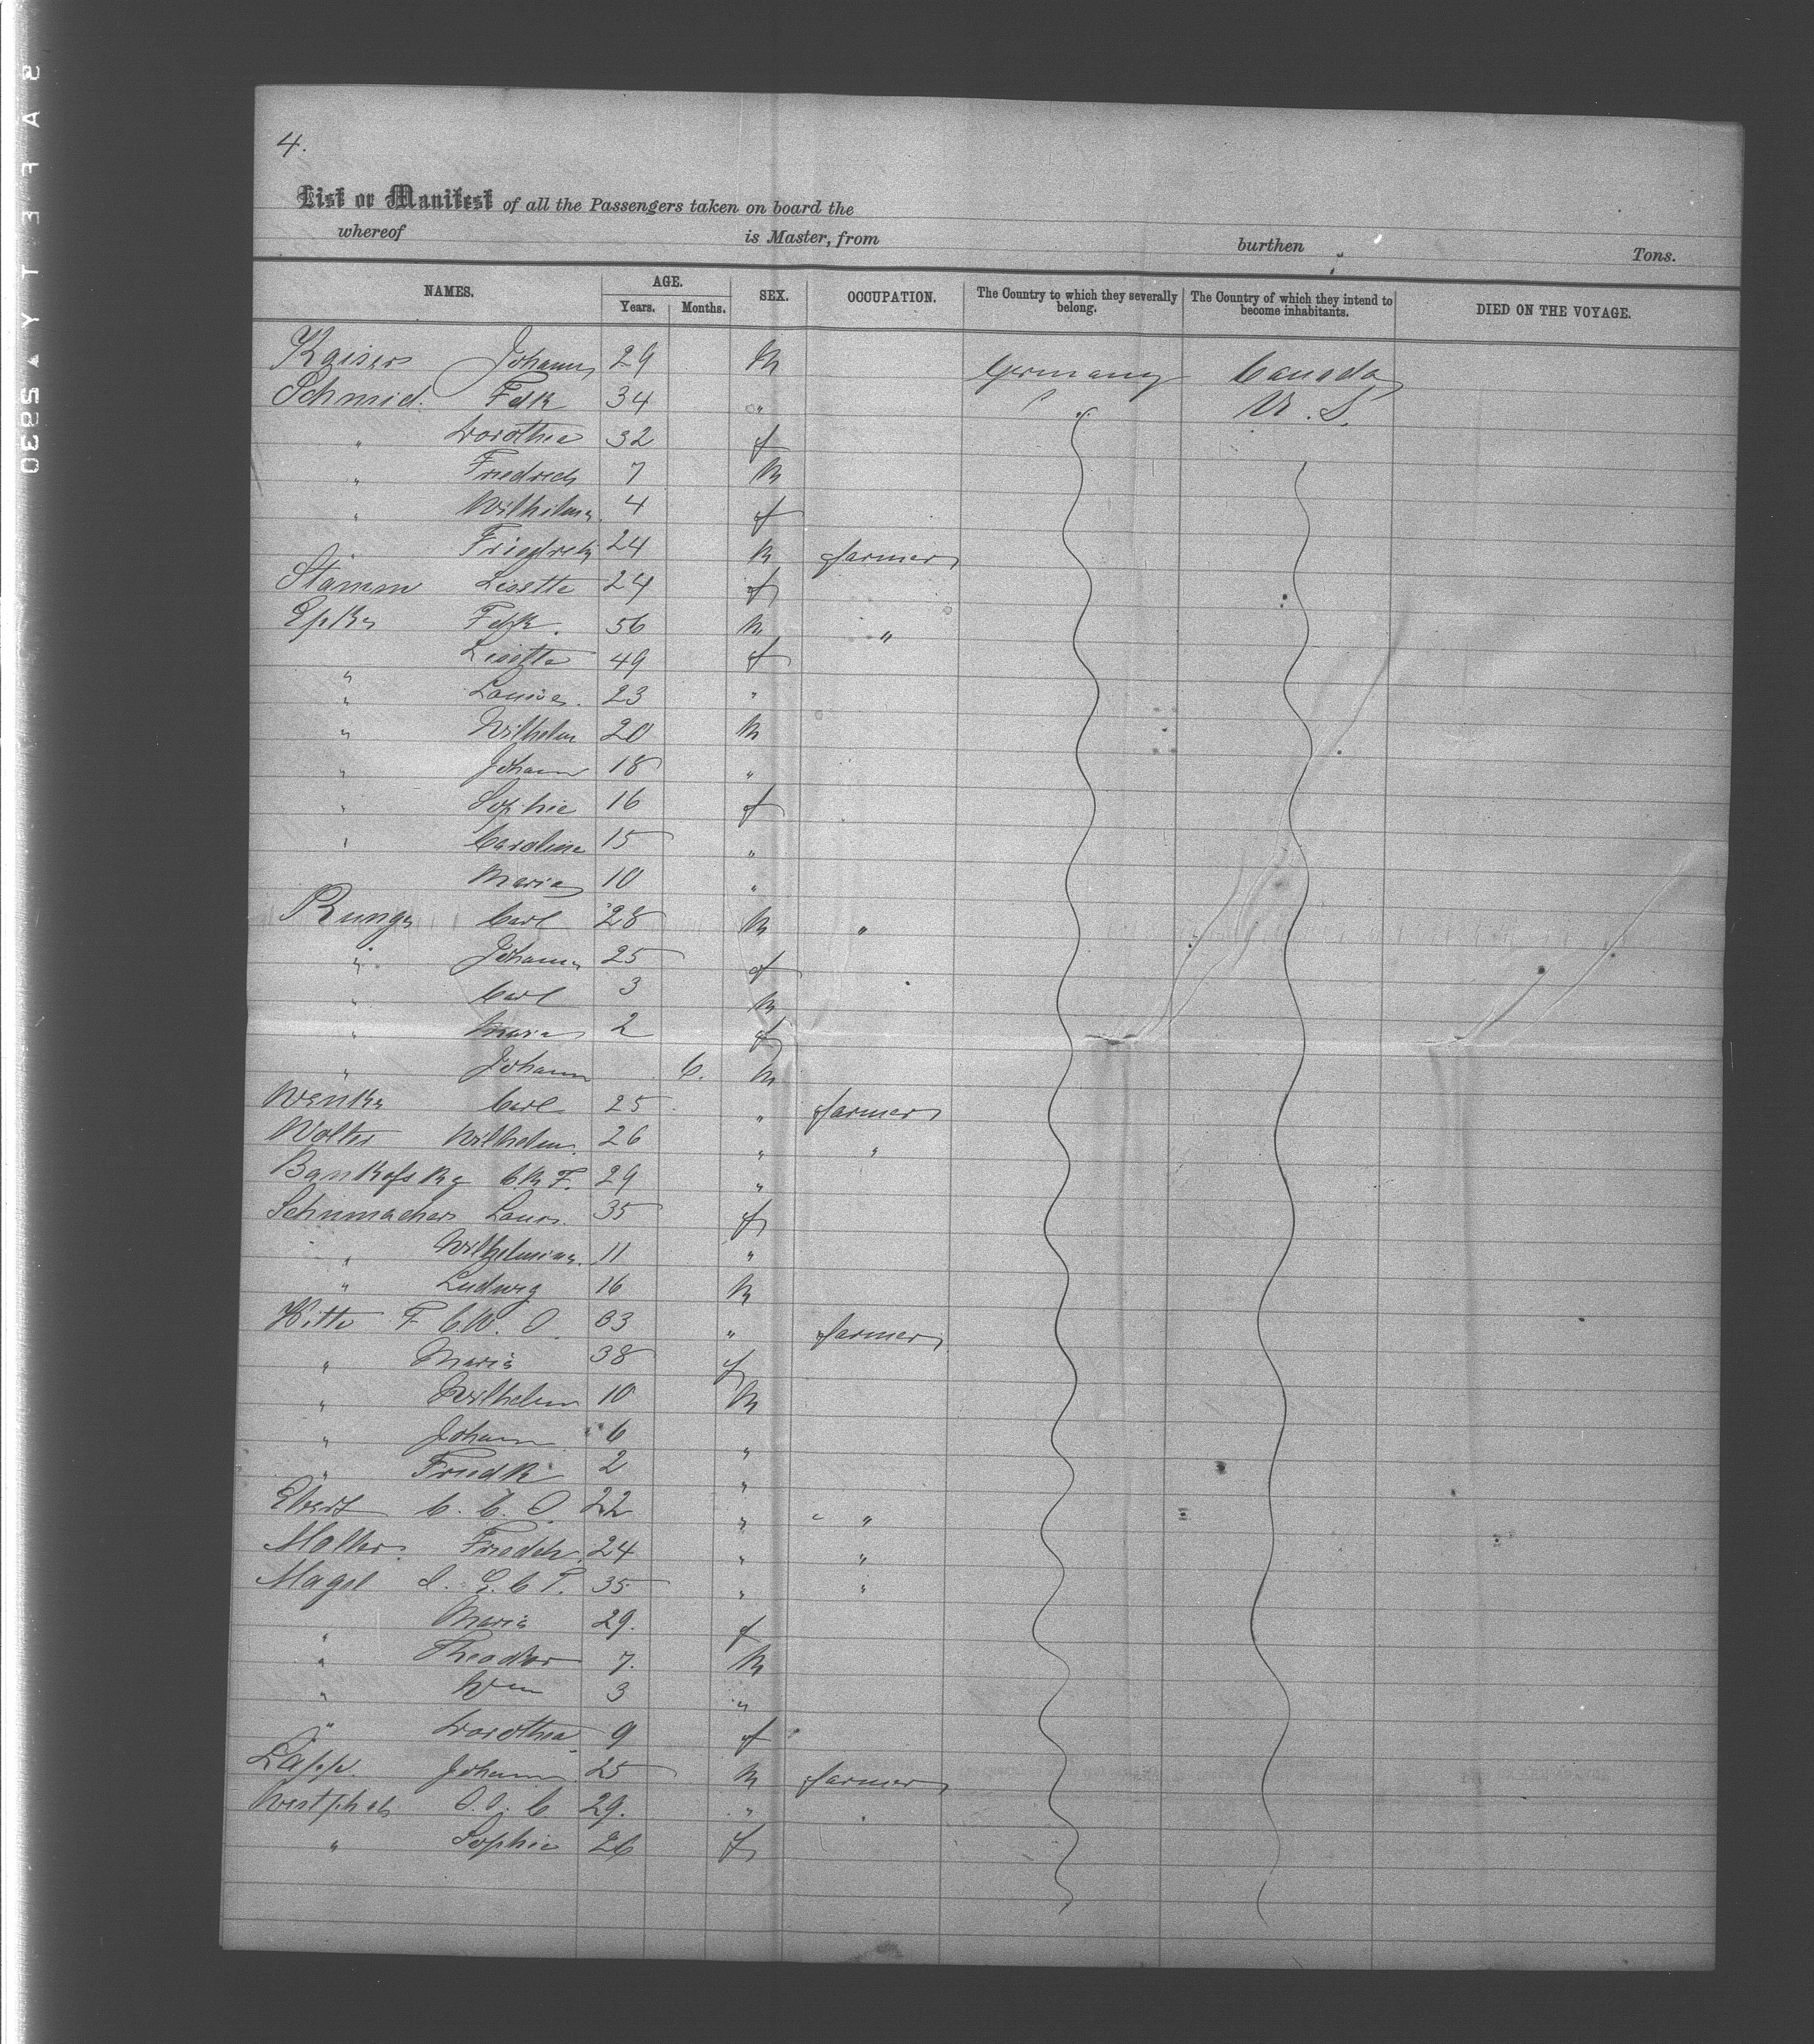 4.
List or Manifest of all the Passengers taken on board the
whereof is Master, from burthen Tons.
NAMES. AGE. Years. Months. SEX. OCCUPATION. The Country to which they severally belong. The Country of which they intend to become inhabitants. DIED ON THE VOYAGE.
Kaiser Johann 29 M Germany Canada
Schmid. Fdk 34 " " U. S.
" Dorothea 32 f
" Friedrich 7 M
" Wilhelma 4 f
Friedrich 24 M farmer
Stamm Lisette 24 f
Epke Fdk. 56 M "
" Lisette 49 f
" Louise. 23 "
" Wilhelm 20 M
" Johann 18 "
" Sophie 16 f
" Caroline 15 "
Maria 10 "
Runge Carl 28 M "
" Johanna 25 f
" Carl 3 M
" Maria 2 f
" Johann 6. M
Wenke Carl 25 " farmer
Wolter Wilhelm. 26 " "
Bankofsky C. F. 29 "
Schumacher Louis. 35 f
" Wilhelmina. 11 "
" Ludwig 16 M
Witte F. C. W. J. 33 " farmer
" Maria 38 f
" Wilhelm 10 M
" Johann 6 "
" Friedk 2 "
Ebert C. C. J. 22 " "
Moller Friedch. 24 " "
Nagel J. C. T. 35 " "
" Maria 29. f
" Theodor 7. M
" Wm 3 "
" Dorothea 9 f
Lapp. Johann 25 M farmer
Westphal J. J. C. 29. "
" Sophia 26 f
SAFETY 5830